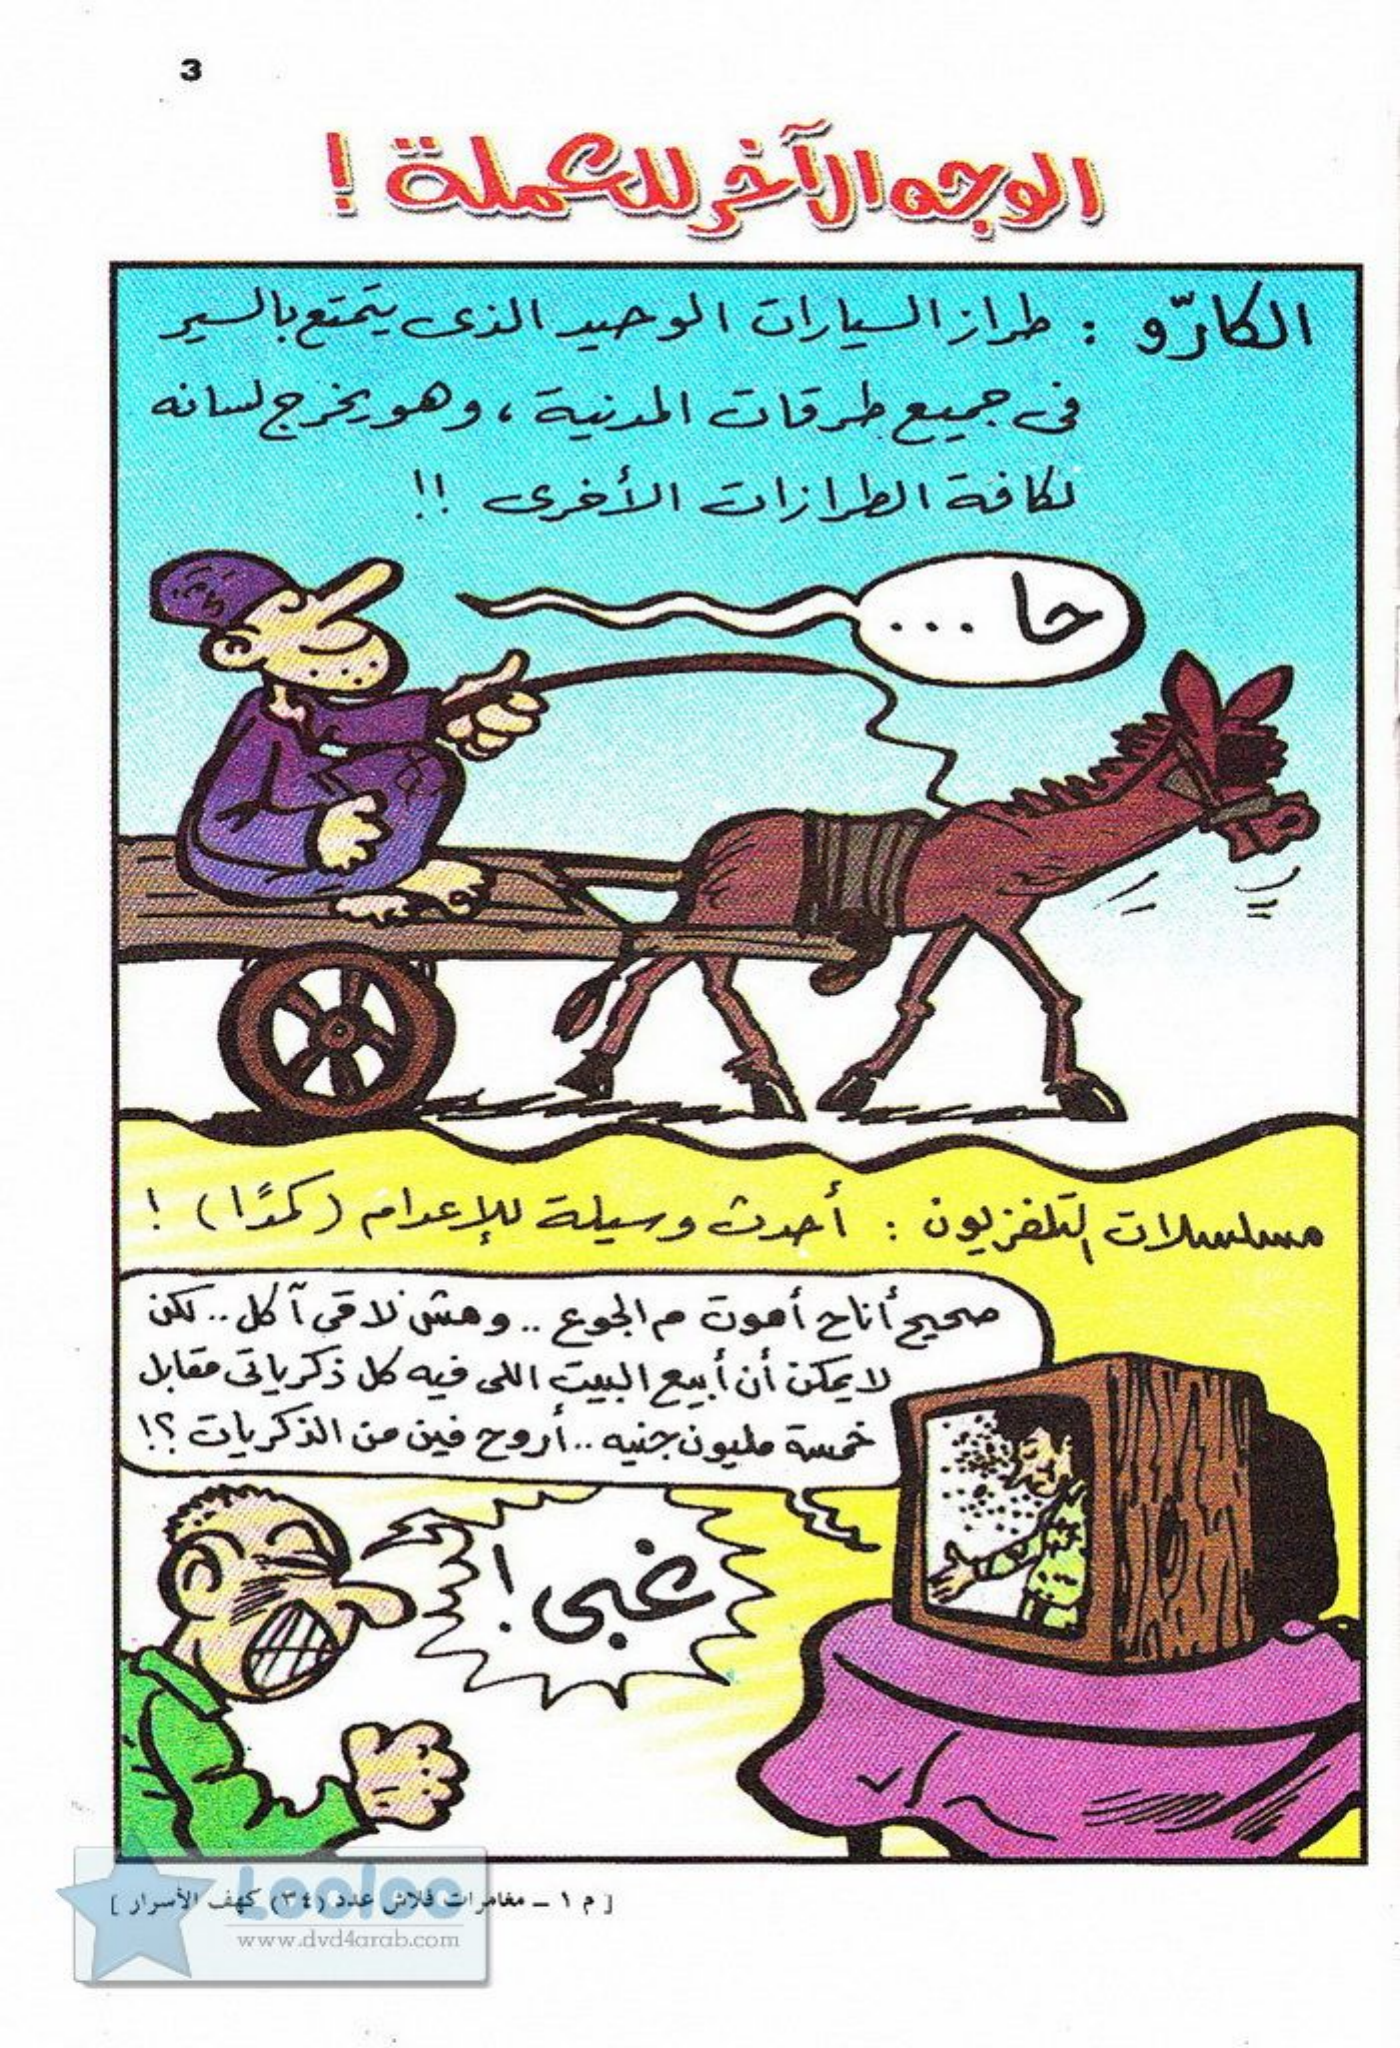 3
الوجه الآخر للعملة !
الكارّو : طراز السيارات الوحيد الذى يتمتع بالسير
فى جميع طرقات المدنية ، وهو يخرج لسانه
لكافة الطرازات الأخرى !!
حا ...
مسلسلات التلفزيون : أحدث وسيلة للإعدام (كمدًا) !
صحيح أناح أموت م الجوع .. ومش لاقى آكل .. لكن
لا يمكن أن أبيع البيت اللى فيه كل ذكرياتى مقابل
خمسة مليون جنيه .. أروح فين من الذكريات ؟!
غبى !
[ م ١ ــ مغامرات فلاش عدد (٣٤) كهف الأسرار ]
Looloo
www.dvd4arab.com